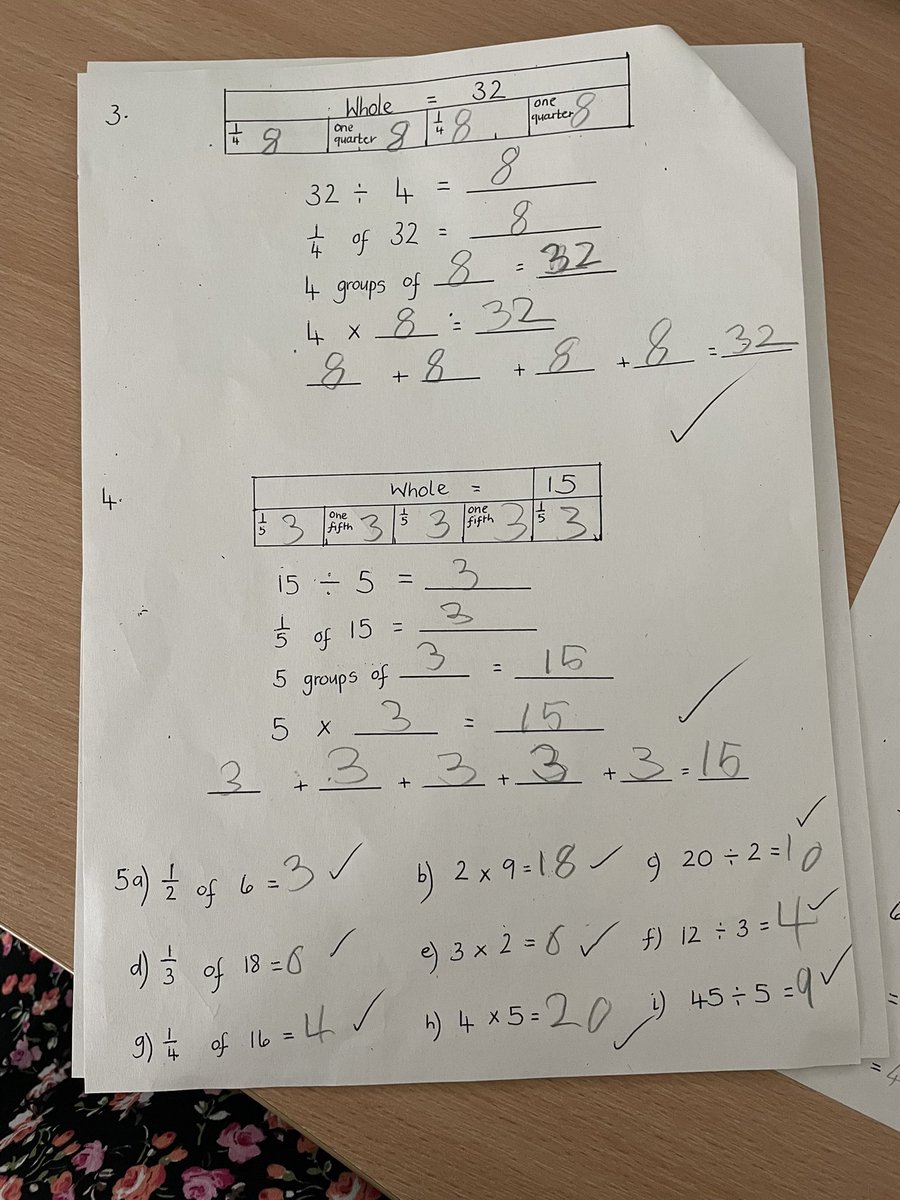 3.
Whole = 32
1/4 8 one quarter 8 1/4 8 one quarter 8
32 ÷ 4 = 8
1/4 of 32 = 8
4 groups of 8 = 32
4 x 8 = 32
8 + 8 + 8 + 8 = 32
4.
Whole = 15
1/5 3 One fifth 3 1/5 3 One fifth 3 1/5 3
15 ÷ 5 = 3
1/5 of 15 = 3
5 groups of 3 = 15
5 x 3 = 15
3 + 3 + 3 + 3 + 3 = 15
5a) 1/2 of 6 = 3 ✓ b) 2 x 9 = 18 ✓ c) 20 ÷ 2 = 10 ✓
d) 1/3 of 18 = 6 ✓ e) 3 x 2 = 6 ✓ f) 12 ÷ 3 = 4 ✓
g) 1/4 of 16 = 4 ✓ h) 4 x 5 = 20 ✓ i) 45 ÷ 5 = 9 ✓